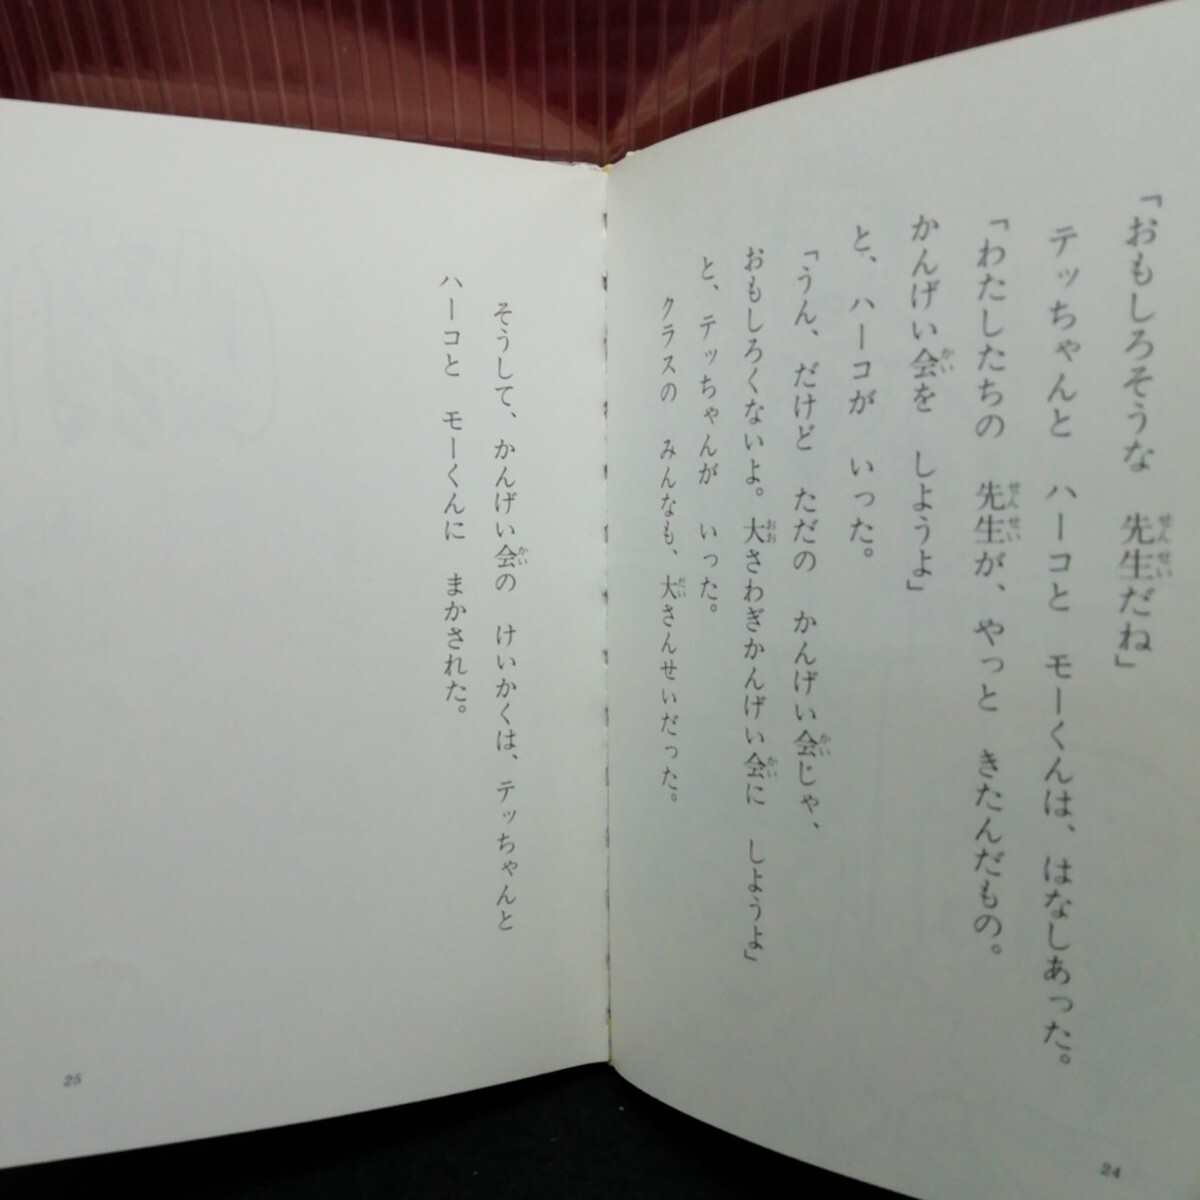 「おもしろそうな　先生だね」
テッちゃんと　ハーコと　モーくんは、はなしあった。
「わたしたちの　先生が、やっと　きたんだもの。
かんげい会を　しようよ」
と、ハーコが　いった。
「うん、だけど　ただの　かんげい会じゃ、
おもしろくないよ。大さわぎかんげい会に　しようよ」
と、テッちゃんが　いった。
クラスの　みんなも、大さんせいだった。
24
そうして、かんげい会の　けいかくは、テッちゃんと
ハーコと　モーくんに　まかされた。
25